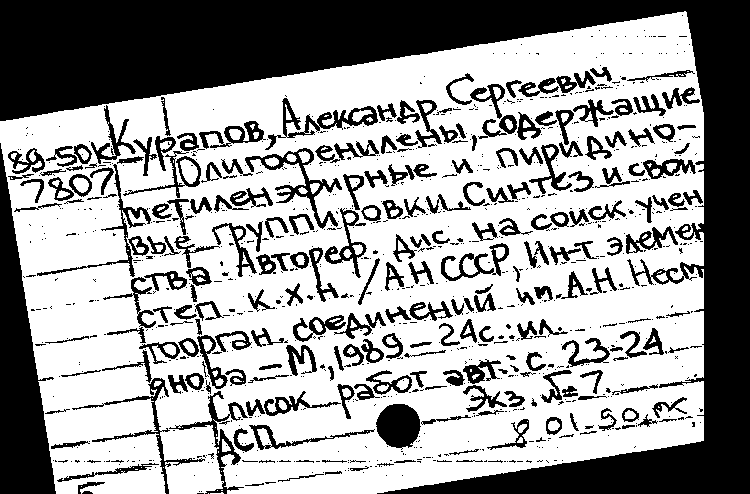 89-50к Курапов, Александр Сергеевич.
7807 Олигофенилены, содержащие
метиленэфирные и пиридино-
вые группировки. Синтез и свой-
ства: Автореф. дис. на соиск. учен
степ. к.х.н. /АН СССР, Ин-т элемен
тоорган. соединений им. А.Н. Несм
янова. - М., 1989. - 24с.: ил.
Список работ авт.: с. 23-24
ДСП Экз. № 7.